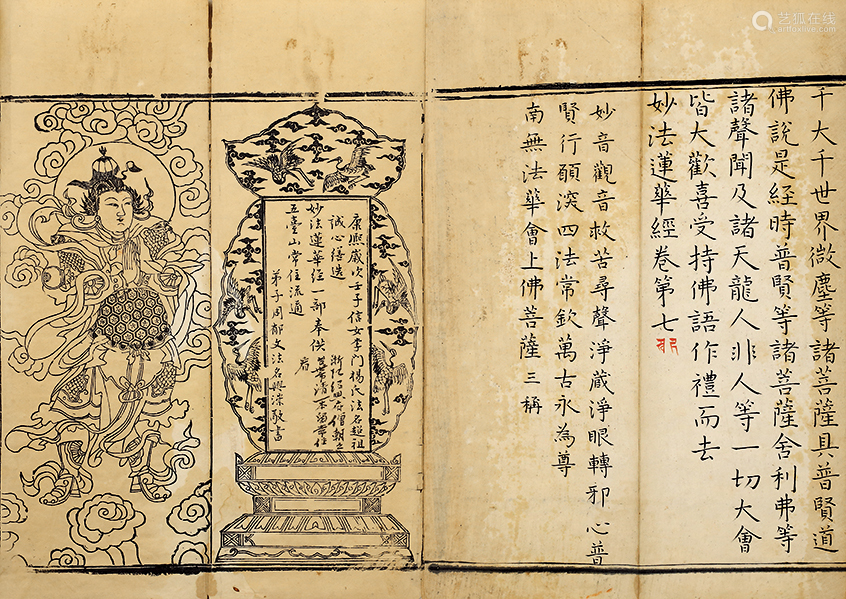 千大千世界微塵等諸菩薩具普賢道
佛說是經時普賢等諸菩薩舍利弗等
諸聲聞及諸天龍人非人等一切大會
皆大歡喜受持佛語作禮而去
妙法蓮華經卷第七
妙音觀音救苦尋聲淨藏淨眼轉邪心普
賢行願深四法常欽萬古永為尊
南無法華會上佛菩薩三稱
康熙歲次壬子信女李門楊氏法名超祖
誠心繕造
妙法蓮華經一部奉供
五臺山常住流通
弟子周郁文法名興深敬書
艺狐在线
artfoxlive.com